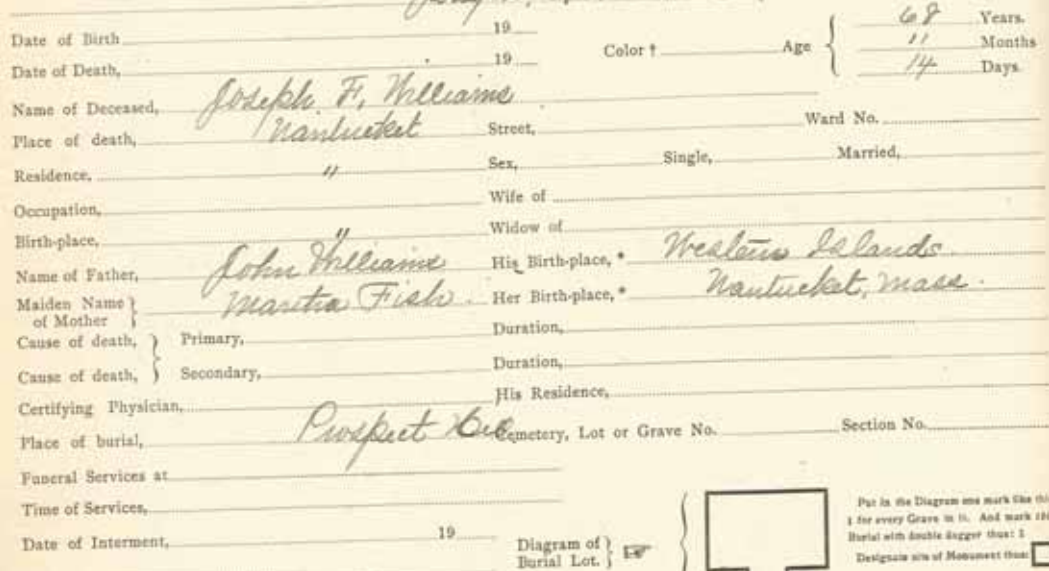 Date of Birth 19 Color † Age 68 Years.
11 Months
Date of Death, 19 14 Days.
Name of Deceased, Joseph F. Williams
Place of death, Nantucket Street, Ward No.
Residence, " Sex, Single, Married,
Occupation, Wife of
Birth-place, " Widow of
Name of Father, John Williams His Birth-place, * Western Islands
Maiden Name of Mother } Martha Fish. Her Birth-place, * Nantucket, Mass.
Cause of death, } Primary, Duration,
Cause of death, } Secondary, Duration,
Certifying Physician, His Residence,
Place of burial, Prospect Cemetery, Lot or Grave No. Section No.
Funeral Services at
Time of Services,
Date of Interment, 19
Diagram of Burial Lot. } ☞
Put in the Diagram one mark like
for every Grave in it. And mark
Burial with double dagger thus: ‡
Designate site of Monument thus: